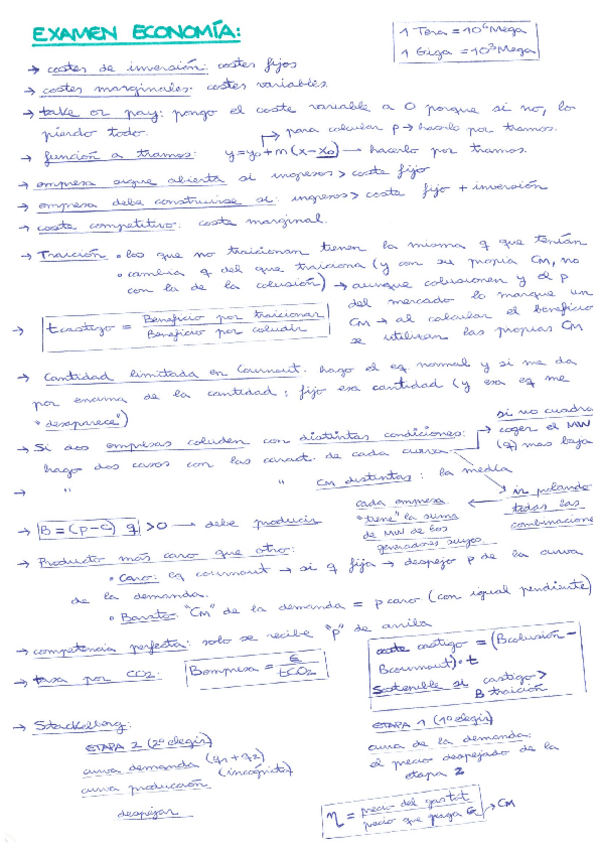 EXAMEN ECONOMÍA:
1 Tera = 10⁶ Mega
1 Giga = 10³ Mega
→ costes de inversión: costes fijos
→ costes marginales: costes variables.
→ take or pay: pongo el coste variable a 0 porque si no, lo
pierdo todo.
→ para calcular p → hacerlo por tramos.
→ función a tramos: y = y₀ + m (x - x₀) → hacerlo por tramos.
→ empresa sigue abierta si ingresos > coste fijo
→ empresa debe construirse si: ingresos > coste fijo + inversión
→ coste competitivo: coste marginal.
→ Traición • los que no traicionan tienen la misma q que tenían
• cambia q del que traiciona (y con su propia CM, no
con la de la colusión) → aunque colusionen y el p
del mercado lo marque un
CM → al calcular el beneficio
se utilizan las propias CM
→ t castigo = Beneficio por traicionar / Beneficio por coludir
→ Cantidad limitada en Cournout: hago el eq normal y si me da
por encima de la cantidad; fijo esa cantidad (y esa eq me
"desaparece")
si no cuadra
→ Si dos empresas coluden con distintas condiciones: → coger el MW
(q) mas baja
hago dos casos con las caract. de cada curva
→ " " CM distintas: la media
→ ir probando
todas las
combinaciones
cada empresa
"tiene" la suma
de MW de los
generadores suyos
→ B = (p - c) q > 0 → debe producir
→ Producto más caro que otro:
• Caro: eq cournout → si q fija → despejo p de la curva
de la demanda.
• Barato: "CM" de la demanda = p caro (con igual pendiente)
→ competencia perfecta: solo se recibe "p" de arriba
→ taxa por CO2: B empresa = € / tCO₂
coste castigo = (B colusión -
B cournout) · t
Sostenible si castigo >
B traición
→ Stackelberg:
ETAPA 2 (2º elegir)
curva demanda (q₁ + q₂)
curva producción (incógnita)
despejar
ETAPA 1 (1º elegir)
curva de la demanda:
el precio despejado de la
etapa 2
η = precio del gas tot / precio que paga € → CM